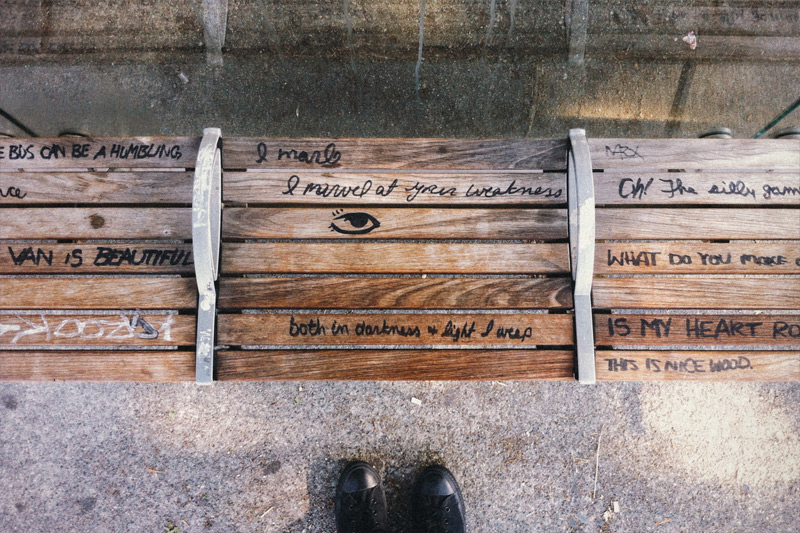 E BUS CAN BE A HUMBLING
nce
VAN IS BEAUTIFUL
I marb
I marvel at your weakness
both in darkness + light I weep
Oh! The silly gam
WHAT DO YOU MAKE
IS MY HEART RO
THIS IS NICE WOOD.